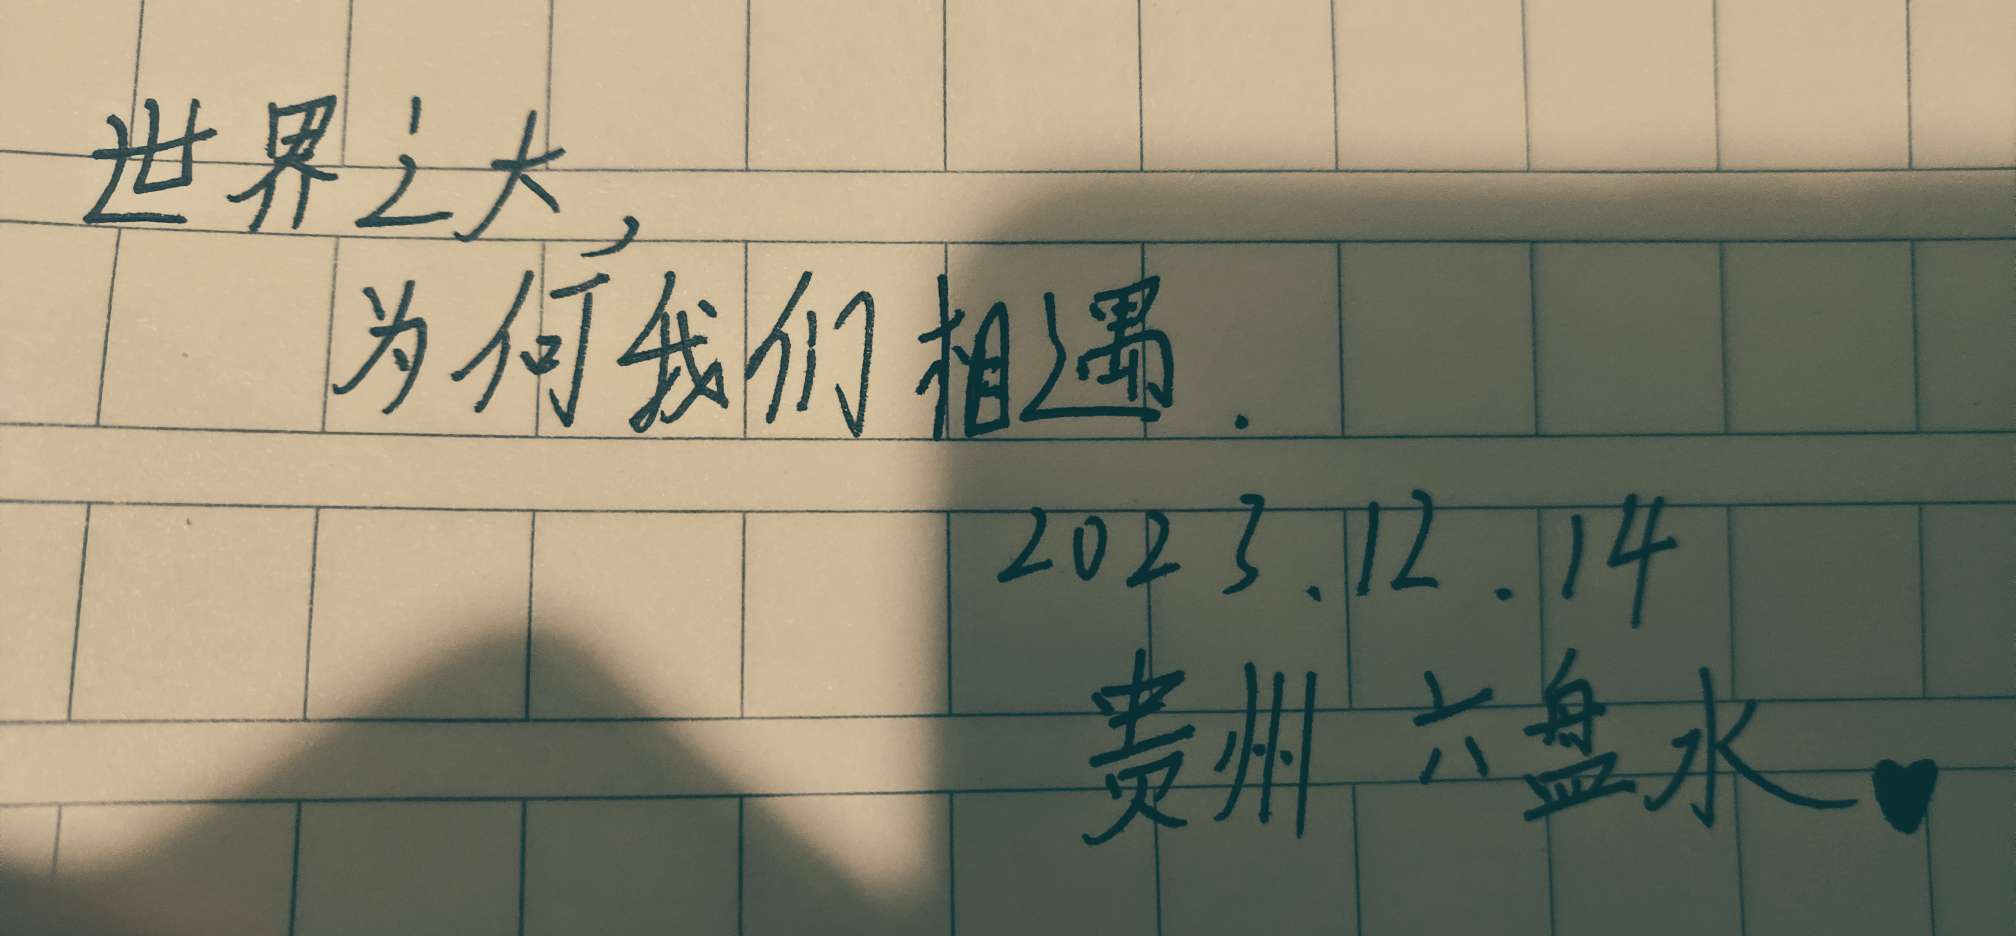 世界之大,
为何我们相遇.
2023.12.14
贵州 六盘水